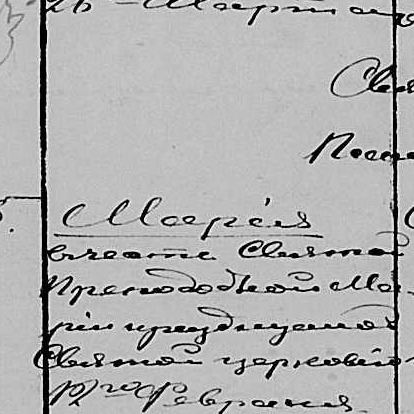 26 Марта
Свя
Марія
въ честь Святой
Преподобной Ма-
ріи празднуемой
Святой церковію
12го Февраля.